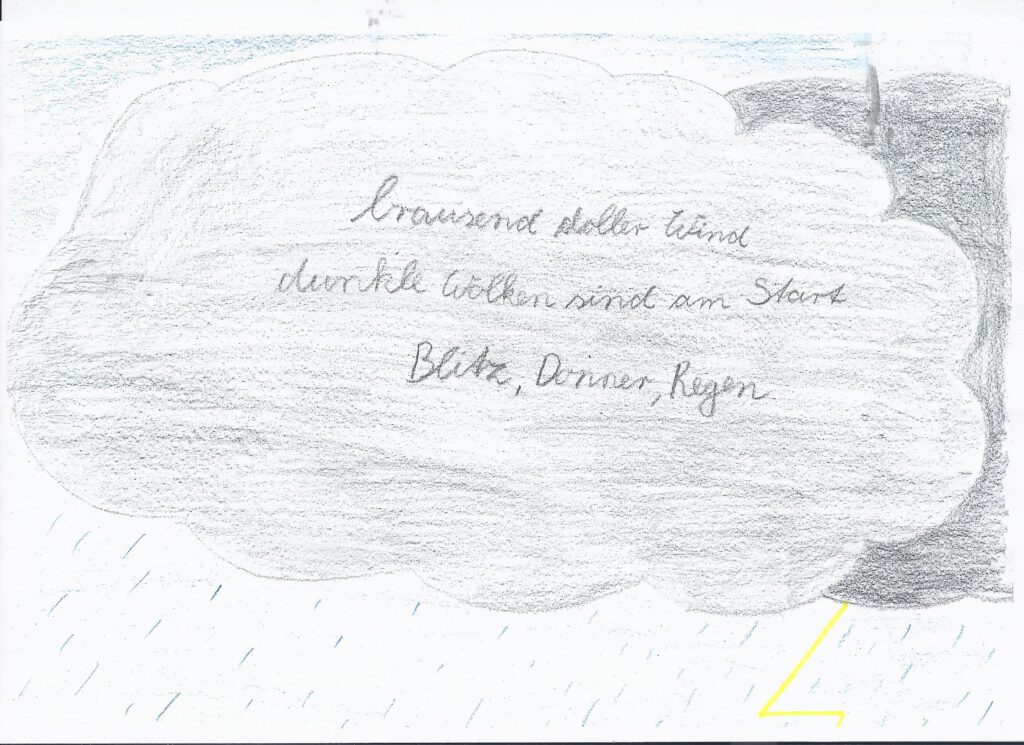 brausend doller Wind
dunkle Wolken sind am Start
Blitz, Donner, Regen